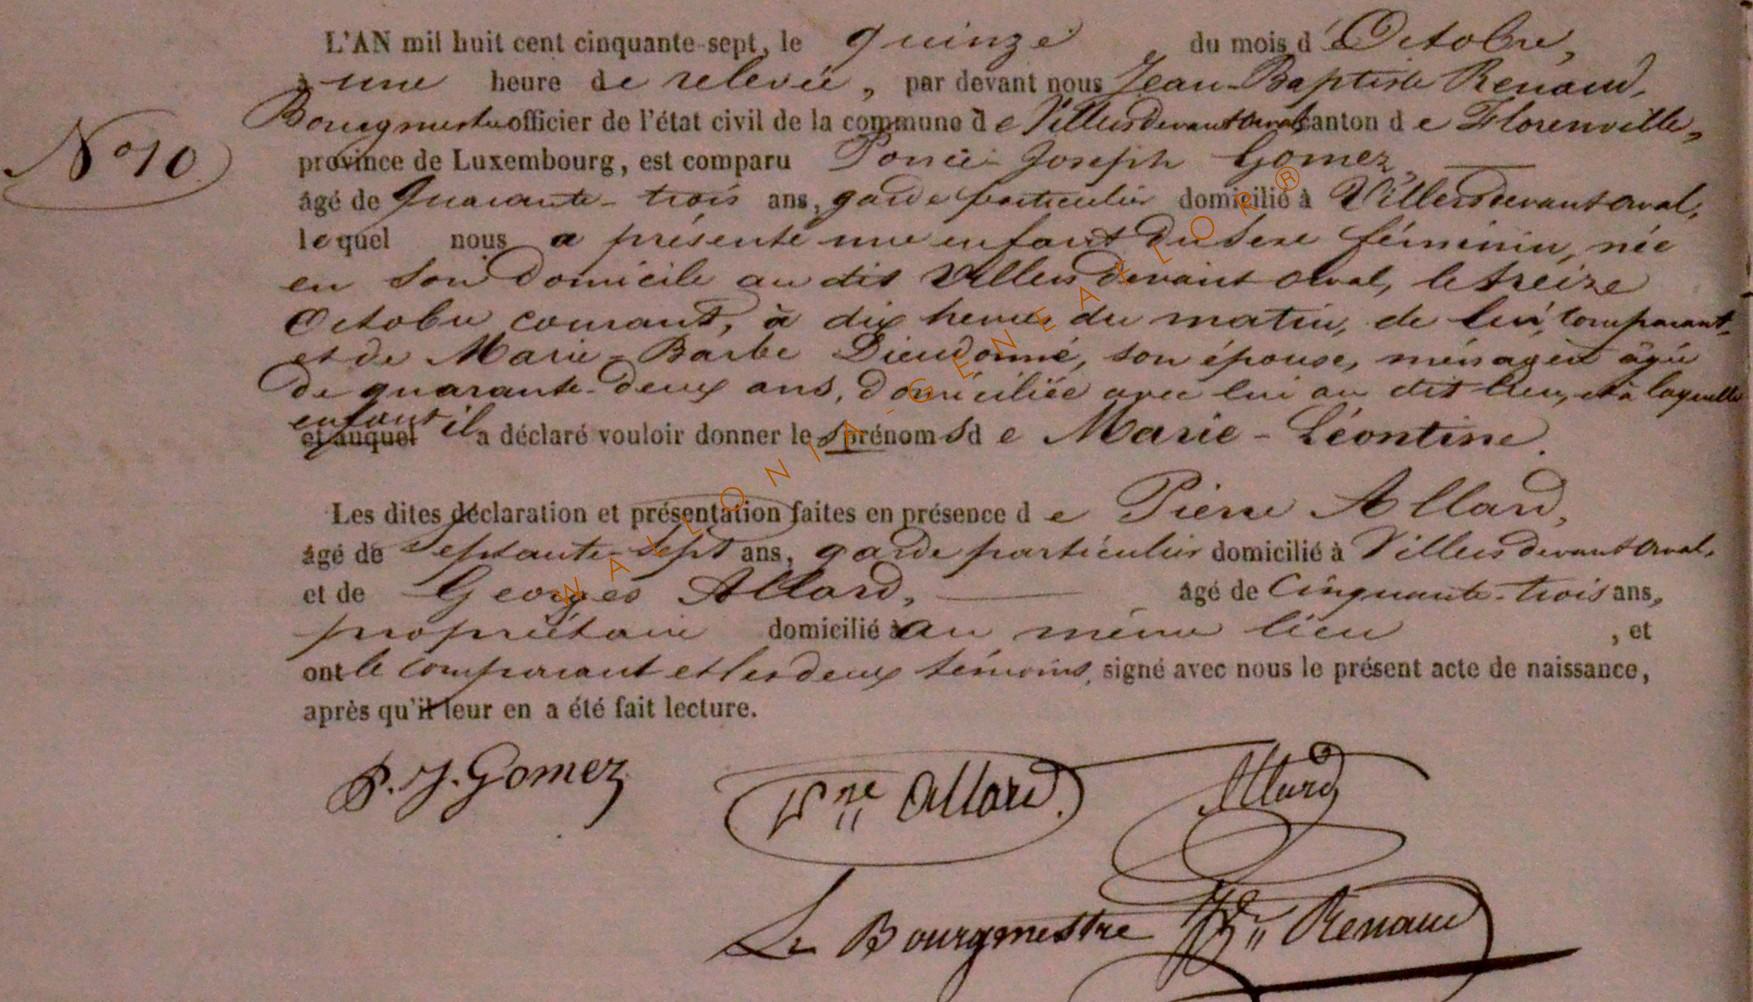 L'AN mil huit cent cinquante-sept, le quinze du mois d'Octobre,
à une heure de relevée, par devant nous Jean-Baptiste Renaud,
Bourgmestre officier de l'état civil de la commune de Villersdevantorval canton de Florenville,
N° 10
province de Luxembourg, est comparu Ponce-Joseph Gomez,
âgé de quarante-trois ans, garde particulier domicilié à Villersdevantorval,
lequel nous a présenté une enfant du sexe féminin, née
en son domicile au dit Villers devant orval, le treize
Octobre courant, à dix heures du matin, de lui, comparant,
et de Marie-Barbe Dieudonné, son épouse, ménagère âgée
de quarante-deux ans, domiciliée avec lui au dit lieu, et à laquelle
enfant il
et auquel a déclaré vouloir donner les prénoms de Marie-Léontine.
Les dites déclaration et présentation faites en présence de Pierre Allard,
âgé de septante-sept ans, garde particulier domicilié à Villersdevantorval,
et de Georges Allard, âgé de cinquante-trois ans,
propriétaire domicilié à au même lieu, et
ont le comparant et les deux témoins, signé avec nous le présent acte de naissance,
après qu'il leur en a été fait lecture.
P. J. Gomez
Pre Allard
Allard
Le Bourgmestre Renaud
WALLONIA-GENEALOR®